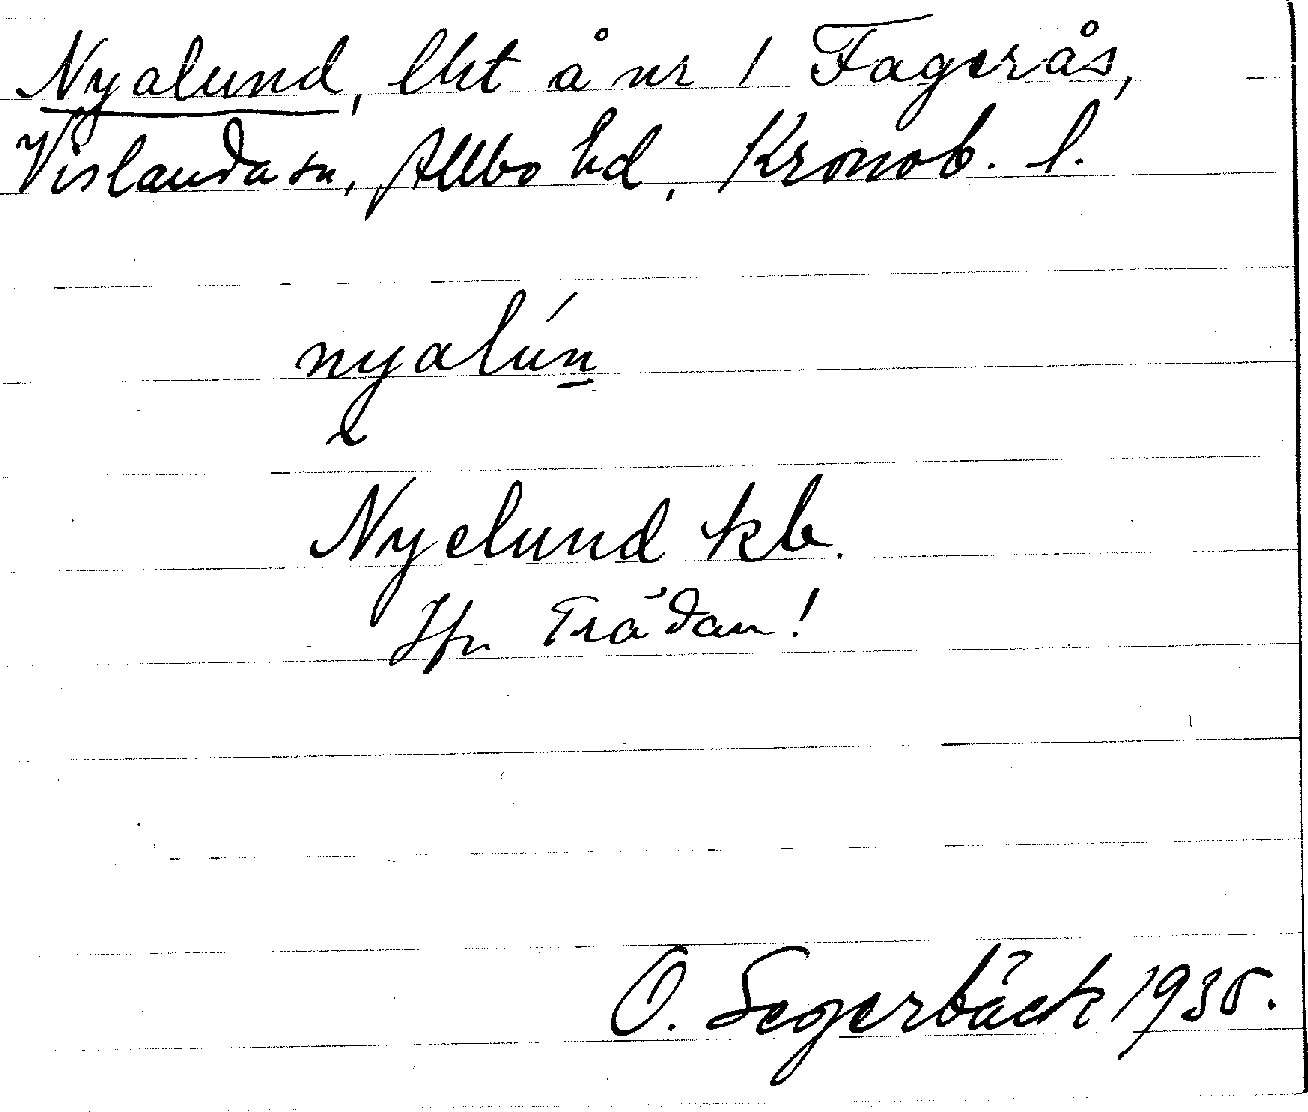 Nyalund, lht å nr 1 Fagerås,
Vislanda sn, Allbo hd, Kronob. l.
nyalún
Nyelund kb.
Jfr Trädan!
O. Segerbäck 1935.